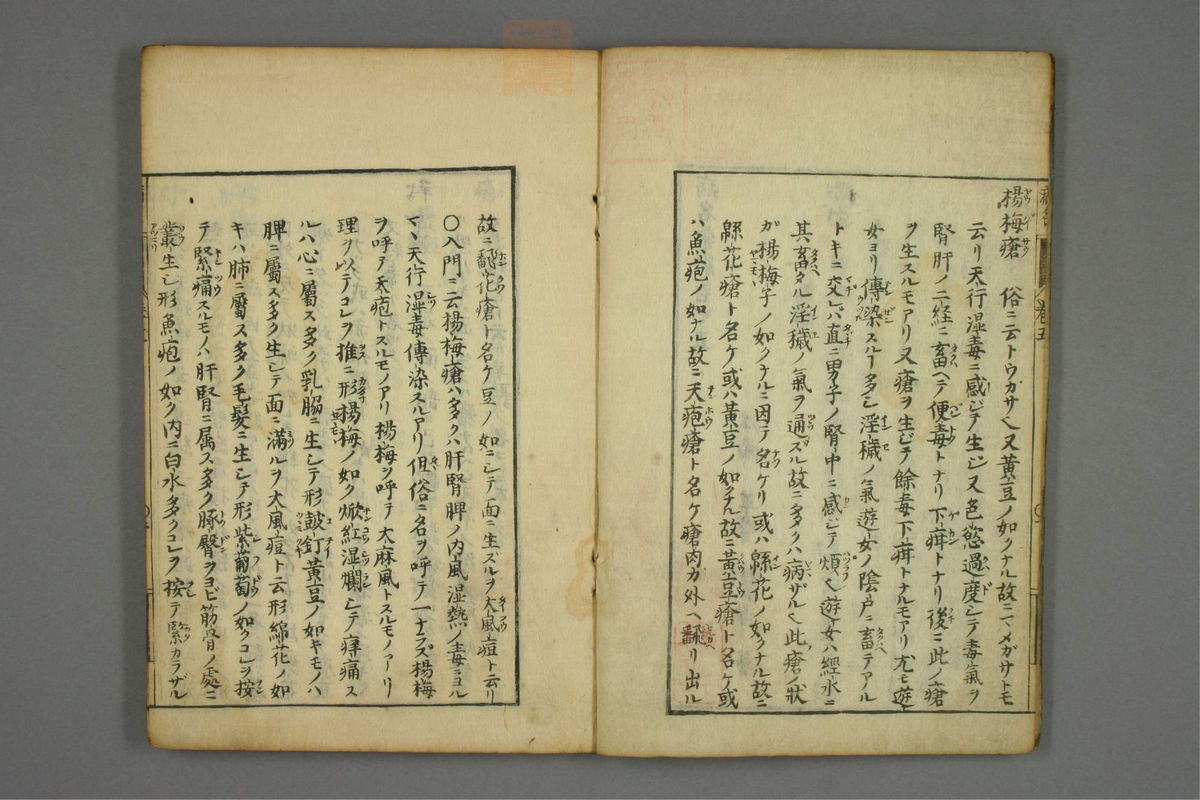 楊梅瘡 俗ニ云トウガサ也又黄豆ノ如クナル故ニマメガサトモ
云リ天行湿毒ニ感ジテ生ジ又色慾過度シテ毒氣ヲ
腎肝ノ二経ニ畜ヘテ便毒トナリ下疳トナリ後ニ此ノ瘡
ヲ生スルモアリ又瘡ヲ生ジテ餘毒下疳トナルモアリ尤モ遊
女ヨリ傳染スルヿ多シ淫穢ノ氣遊女ノ陰戸ニ畜テアル
トキニ交レバ直ニ男子ノ腎中ニ感ジテ煩也遊女ハ經水ニ
其畜タル淫穢ノ氣ヲ通ズル故ニ多クハ病ザル也此瘡ノ状
ガ楊梅子ノ如クナルニ因テ名ケリ或ハ緜花ノ如クナル故ニ
緜花瘡ト名ケ或ハ黄豆ノ如クナル故ニ黄豆瘡ト名ケ或
ハ魚疱ノ如ナル故ニ天疱瘡ト名ケ瘡肉ガ外ヘ飜リ出ル
故ニ飜花瘡ト名ケ豆ノ如ニシテ面ニ生ズルヲ大風痘ト云リ
〇入門ニ云楊梅瘡ハ多クハ肝腎脾ノ内風湿熱ノ毒ニヨル
又天行湿毒傳染スルアリ但俗ニ名ヲ呼テ一ナラズ楊梅
ヲ呼テ天疱トスルモノアリ楊梅ヲ呼テ大麻風トスルモノアリ
理ヲ以テコレヲ推ニ形楊梅ノ如ク焮紅湿爛シテ痒痛ス
ルハ心ニ屬ス多ク乳脇ニ生シテ形皷釘黄豆ノ如キモノハ
脾ニ屬ス多ク生シテ面ニ滿ルヲ大風痘ト云形綿花ノ如
キハ肺ニ屬ス多ク毛髪ニ生シテ形紫葡萄ノ如クコレヲ按
テ緊痛スルモノハ肝腎ニ属ス多ク豚臀ヲヨビ筋骨ノ處ニ
叢生シ形魚疱ノ如ク内ニ白水多クコレヲ按テ緊カラザル
卷五